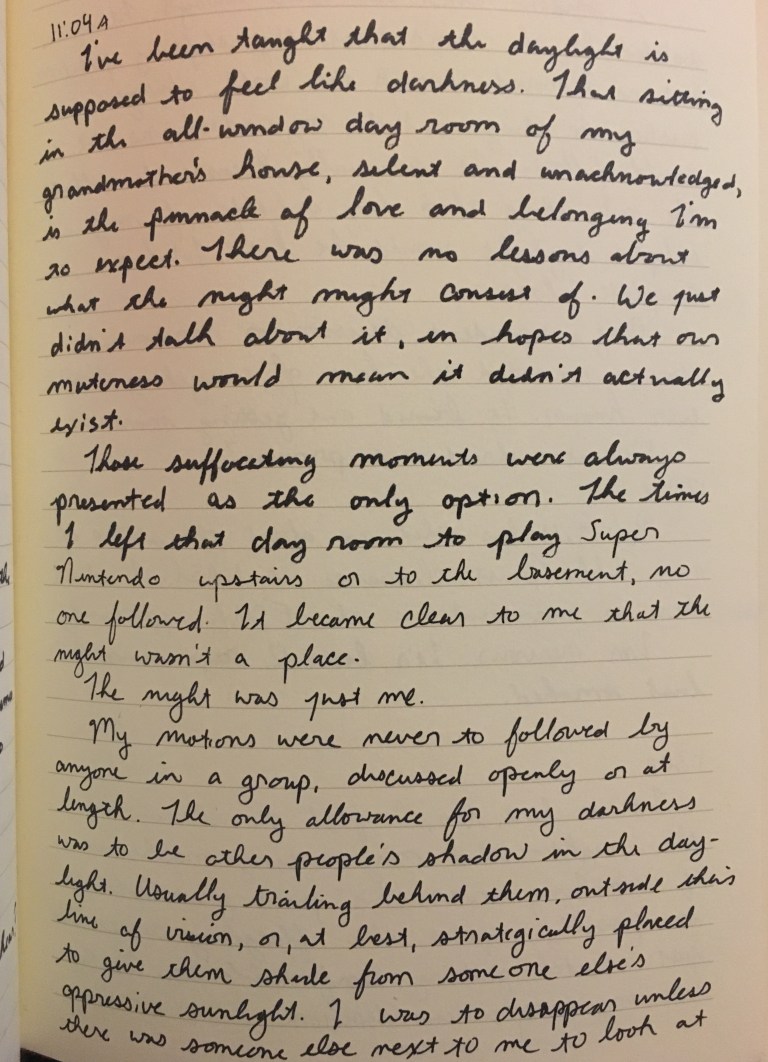 11:04 A
I've been taught that the daylight is
supposed to feel like darkness. That sitting
in the all-window day room of my
grandmother's house, silent and unacknowledged,
is the pinnacle of love and belonging I'm
to expect. There was no lessons about
what the night might consist of. We just
didn't talk about it, in hopes that our
muteness would mean it didn't actually
exist.
Those suffocating moments were always
presented as the only option. The times
I left that day room to play Super
Nintendo upstairs or to the basement, no
one followed. It became clear to me that the
night wasn't a place.
The night was just me.
My motions were never to followed by
anyone in a group, discussed openly or at
length. The only allowance for my darkness
was to be other people's shadow in the day-
light. Usually trailing behind them, outside their
line of vision, or, at best, strategically placed
to give them shade from someone else's
oppressive sunlight. I was to disappear unless
there was someone else next to me to look at